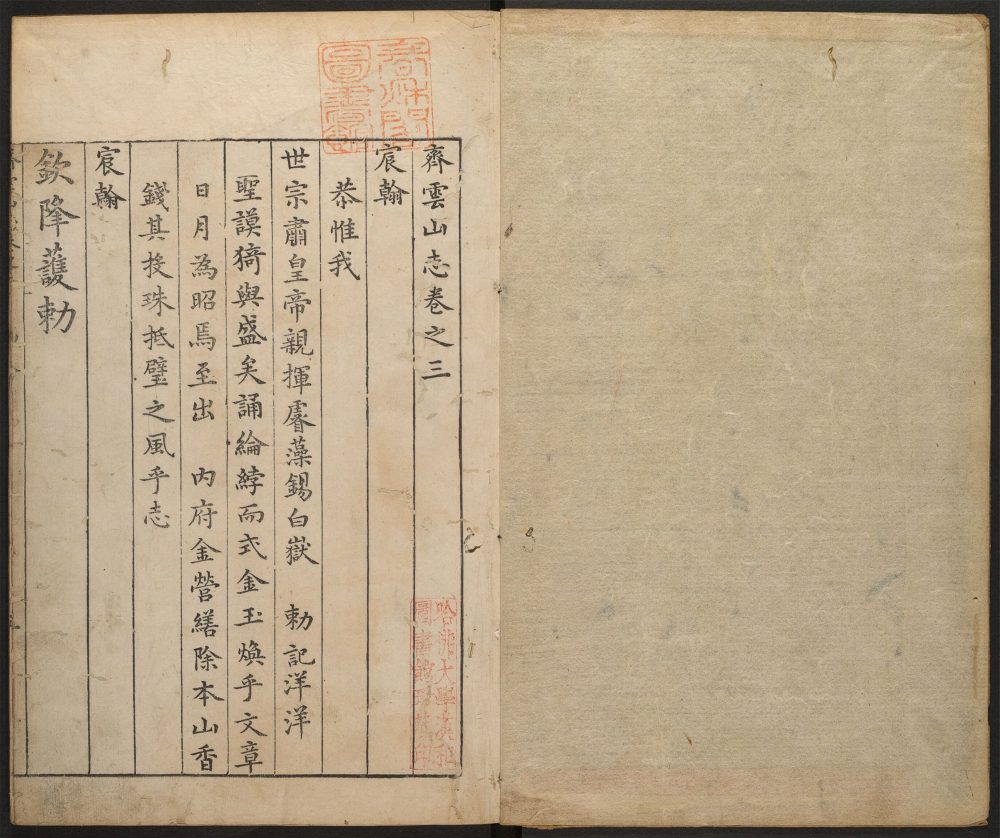 齊雲山志卷之三
宸翰
恭惟我
世宗肅皇帝親揮睿藻錫白嶽 勅記洋洋
聖謨猗與盛矣誦綸綍而式金玉煥乎文章
日月為昭焉至出 內府金營繕除本山香
錢其投珠抵璧之風乎志
宸翰
欽降護勅
哈佛大學漢和
圖書館珍藏印